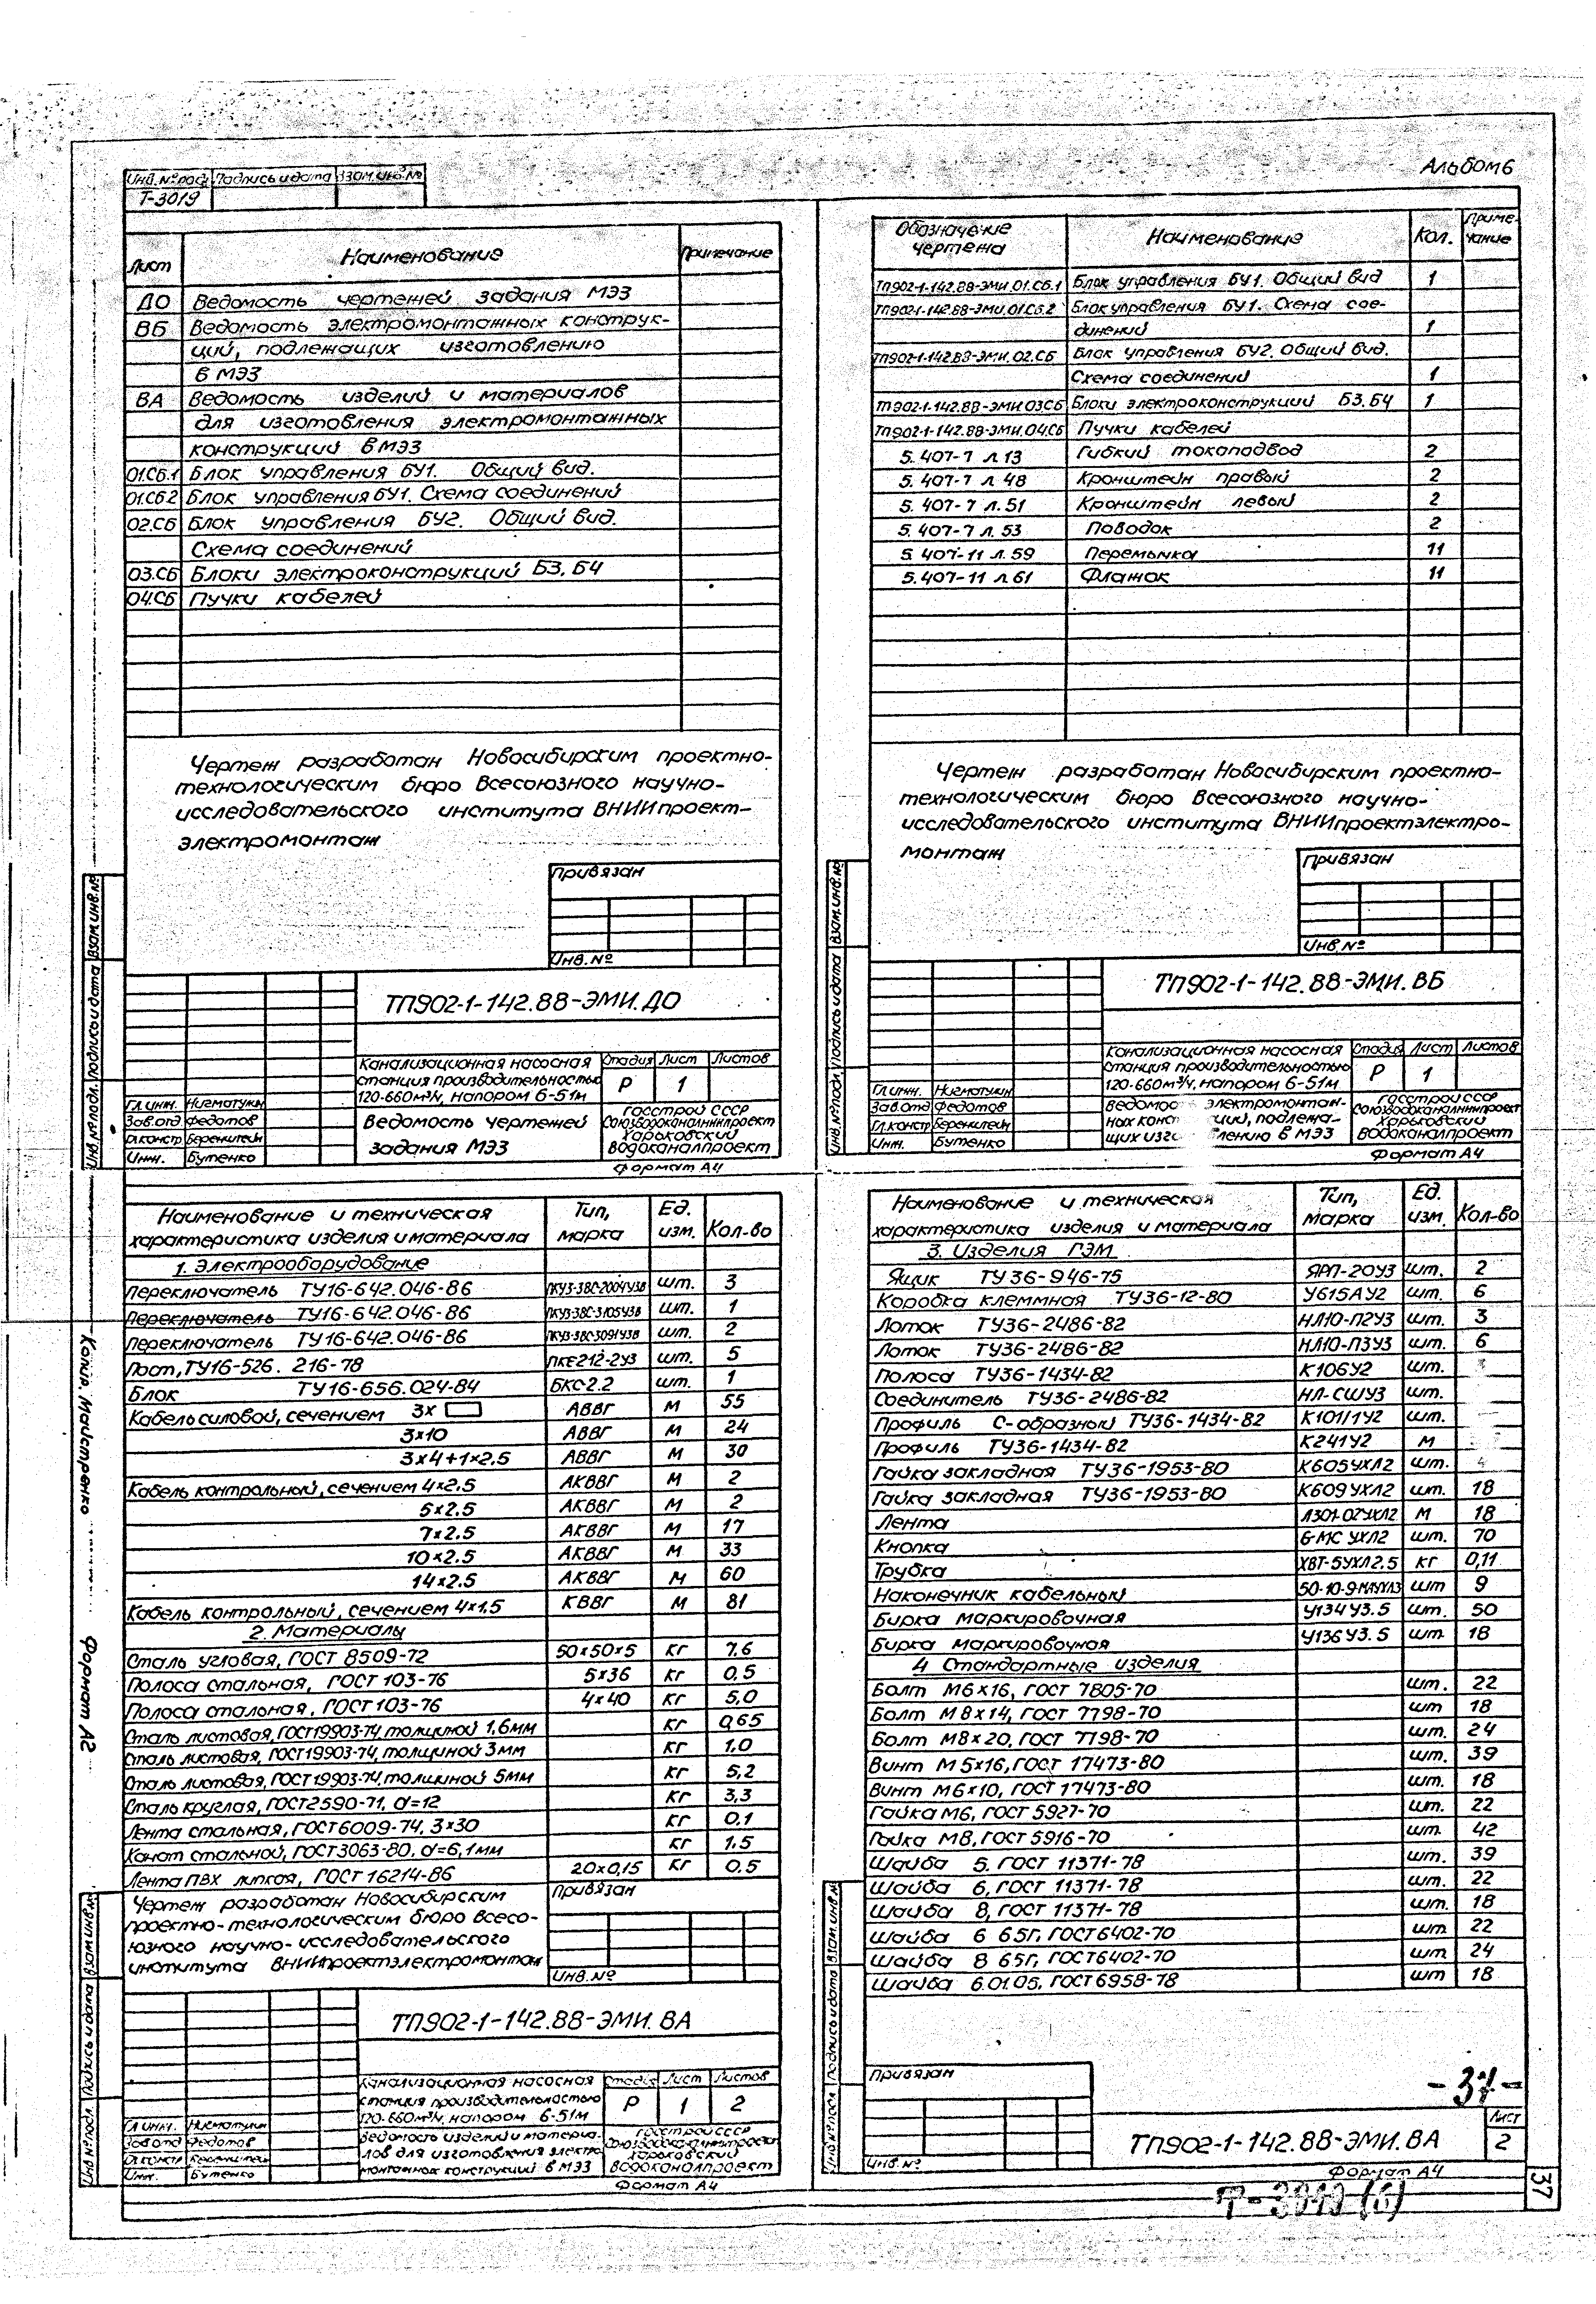 Альбом 6
Инв. № подл. Подпись и дата Взам. инв. №
Т-3019
Лист Наименование Примечание
ДО Ведомость чертежей задания МЭЗ
ВБ Ведомость электромонтажных конструк-
ций, подлежащих изготовлению
в МЭЗ
ВА Ведомость изделий и материалов
для изготовления электромонтажных
конструкций в МЭЗ
01.СБ.1 Блок управления БУ1. Общий вид.
01.СБ2 Блок управления БУ1. Схема соединений
02.СБ Блок управления БУ2. Общий вид.
Схема соединений
03.СБ Блоки электроконструкций Б3, Б4
04.СБ Пучки кабелей
Чертеж разработан Новосибирским проектно-
технологическим бюро Всесоюзного научно-
исследовательского института ВНИИпроект-
электромонтаж
Привязан
Инв. №
ТП902-1-142.88-ЭМИ.ДО
Канализационная насосная
станция производительностью
120-660м³/ч, напором 6-51м
Стадия Лист Листов
Р 1
Гл. инж. Нигматулин
Зав. отд Федотов
Гл. констр Беренштейн
Инж. Бутенко
Ведомость чертежей
задания МЭЗ
Госстрой СССР
Союзводоканалниипроект
Харьковский
Водоканалпроект
Формат А4
Инв. № подл. Подпись и дата Взам. инв. №
Обозначение
чертежа
Наименование Кол. Приме-
чание
ТП902-1-142.88-ЭМИ.01.СБ.1 Блок управления БУ1. Общий вид 1
ТП902-1-142.88-ЭМИ.01.СБ.2 Блок управления БУ1. Схема сое-
динений 1
ТП902-1-142.88-ЭМИ.02.СБ Блок управления БУ2. Общий вид.
Схема соединений 1
ТП902-1-142.88-ЭМИ.03СБ Блоки электроконструкций Б3, Б4 1
ТП902-1-142.88-ЭМИ.04.СБ Пучки кабелей
5.407-7 л 13 Гибкий токоподвод 2
5.407-7 л 48 Кронштейн правый 2
5.407-7 л. 51 Кронштейн левый 2
5.407-7 л. 53 Поводок 2
5.407-11 л. 59 Перемычка 11
5.407-11 л 61 Флажок 11
Чертеж разработан Новосибирским проектно-
технологическим бюро Всесоюзного научно-
исследовательского института ВНИИпроектэлектро-
монтаж
Привязан
Инв. №
ТП902-1-142.88-ЭМИ.ВБ
Канализационная насосная
станция производительностью
120-660м³/ч, напором 6-51м
Стадия Лист Листов
Р 1
Гл. инж. Нигматулин
Зав. отд Федотов
Гл. констр Беренштейн
Инж. Бутенко
электромонтаж-
ций, подлежа-
в МЭЗ
Госстрой СССР
Союзводоканалниипроект
Харьковский
Водоканалпроект
Формат А4
Инв. № подл. Подпись и дата Взам. инв. №
Наименование и техническая
характеристика изделия и материала
Тип,
марка
Ед.
изм.
Кол-во
1. Электрооборудование
Переключатель ТУ16-642.046-86 ПКУ3-38С-2004У3В шт. 3
Переключатель ТУ16-642.046-86 ПКУ3-38С-3105У3В шт. 1
Переключатель ТУ16-642.046-86 ПКУ3-38С-3091У3В шт. 2
Пост, ТУ16-526.216-78 ПКЕ212-2У3 шт. 5
Блок ТУ16-656.024-84 БКС-2.2 шт. 1
Кабель силовой, сечением 3х АВВГ м 55
3х10 АВВГ м 24
3х4+1х2.5 АВВГ м 30
Кабель контрольный, сечением 4х2.5 АКВВГ м 2
5х2.5 АКВВГ м 2
7х2.5 АКВВГ м 17
10х2.5 АКВВГ м 33
14х2.5 АКВВГ м 60
Кабель контрольный, сечением 4х1.5 КВВГ м 81
2. Материалы
Сталь угловая, ГОСТ 8509-72 50х50х5 кг 7,6
Полоса стальная, ГОСТ 103-76 5х36 кг 0,5
Полоса стальная, ГОСТ 103-76 4х40 кг 5,0
Сталь листовая, ГОСТ19903-74, толщиной 1,6мм кг 0,65
Сталь листовая, ГОСТ19903-74, толщиной 3мм кг 1,0
Сталь листовая, ГОСТ19903-74, толщиной 5мм кг 5,2
Сталь круглая, ГОСТ2590-71, d=12 кг 3,3
Лента стальная, ГОСТ6009-74, 3х30 кг 0,1
Канат стальной, ГОСТ3063-80, d=6,1мм кг 1,5
Лента ПВХ липкая, ГОСТ 16214-86 20х0,15 кг 0,5
Чертеж разработан Новосибирским
проектно-технологическим бюро всесо-
юзного научно-исследовательского
института ВНИИпроектэлектромонтаж
Привязан
Инв. №
ТП902-1-142.88-ЭМИ.ВА
Канализационная насосная
станция производительностью
120-660м³/ч, напором 6-51м
Стадия Лист Листов
Р 1 2
Гл. инж. Нигматулин
Зав отд Федотов
Гл. констр Беренштейн
Инж. Бутенко
Ведомость изделий и материа-
лов для изготовления электро-
монтажных конструкций в МЭЗ
Госстрой СССР
Союзводоканалниипроект
Харьковский
Водоканалпроект
Формат А4
Инв. № подл. Подпись и дата Взам. инв. №
Копир. Майстренко Формат А2
Наименование и техническая
характеристика изделия и материала
Тип,
марка
Ед.
изм.
Кол-во
3. Изделия ГЭМ
Ящик ТУ 36-946-75 ЯРП-20У3 шт. 2
Коробка клеммная ТУ36-12-80 У615АУ2 шт. 6
Лоток ТУ36-2486-82 НЛ10-П2У3 шт. 3
Лоток ТУ36-2486-82 НЛ10-П3У3 шт. 6
Полоса ТУ36-1434-82 К106У2 шт.
Соединитель ТУ36-2486-82 НЛ-СШУ3 шт.
Профиль С-образный ТУ36-1434-82 К101/1У2 шт.
Профиль ТУ36-1434-82 К241У2 м
Гайка закладная ТУ36-1953-80 К605УХЛ2 шт. 4
Гайка закладная ТУ36-1953-80 К609УХЛ2 шт. 18
Лента Л301-02УХЛ2 м 18
Кнопка 6-МС УХЛ2 шт. 70
Трубка ХВТ-5УХЛ2.5 кг 0,11
Наконечник кабельный 50-10-9-МАУХЛ3 шт 9
Бирка маркировочная У134У3.5 шт. 50
Бирка маркировочная У136У3.5 шт 18
4 Стандартные изделия
Болт М6х16, ГОСТ 7805-70 шт. 22
Болт М8х14, ГОСТ 7798-70 шт 18
Болт М8х20, ГОСТ 7798-70 шт. 24
Винт М5х16, ГОСТ 17473-80 шт. 39
Винт М6х10, ГОСТ 17473-80 шт. 18
Гайка М6, ГОСТ 5927-70 шт. 22
Гайка М8, ГОСТ 5916-70 шт. 42
Шайба 5, ГОСТ 11371-78 шт. 39
Шайба 6, ГОСТ 11371-78 шт. 22
Шайба 8, ГОСТ 11371-78 шт. 18
Шайба 6 65Г, ГОСТ6402-70 шт 22
Шайба 8 65Г, ГОСТ6402-70 шт 24
Шайба 6.01.05, ГОСТ6958-78 шт 18
Привязан
Инв. №
-37-
ТП902-1-142.88-ЭМИ.ВА
Лист
2
Формат А4
Инв № подл. Подпись и дата Взам. инв. №
Т-3019 (6)
37